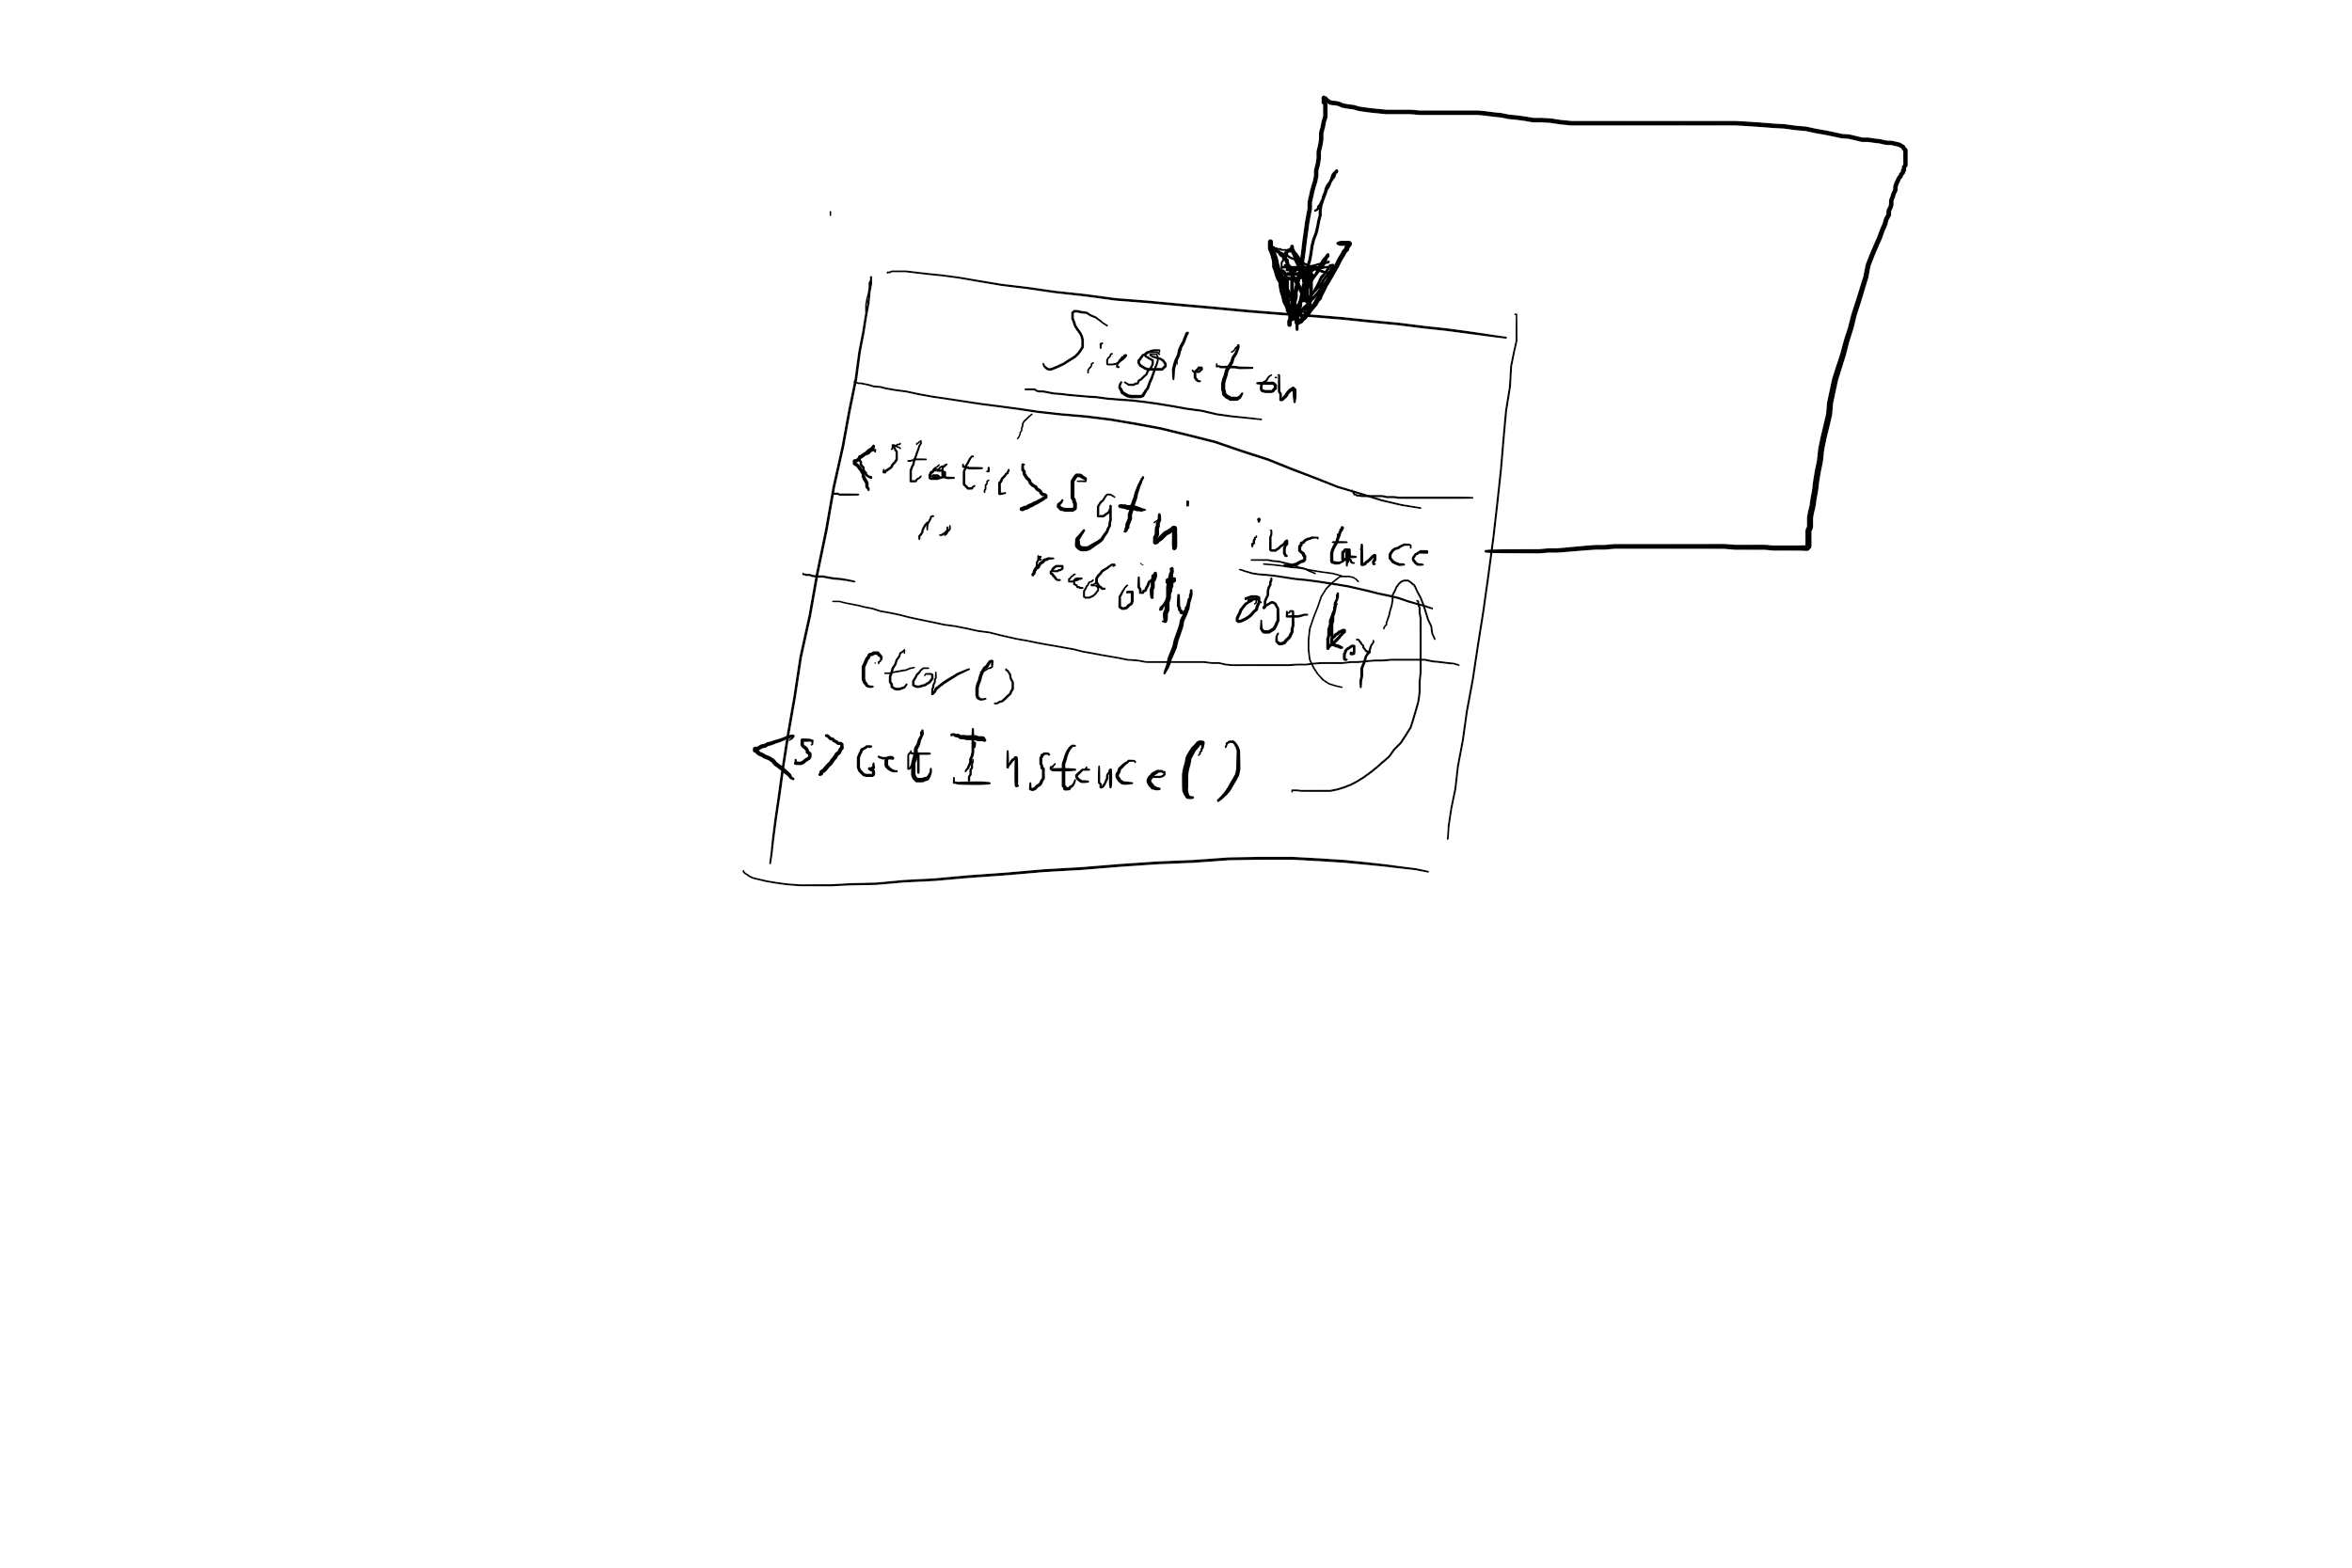 Singleton
<static> Sgtn instance
obj
ctor()
<s> Get Instance()